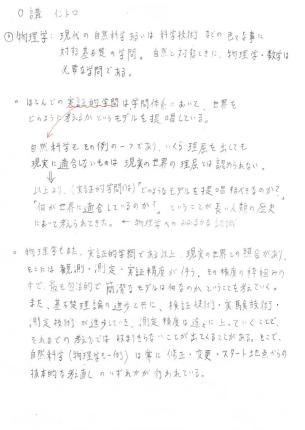 0講 イントロ
① 物理学: 現代の自然科学或いは科学技術などの色々な事に
対応基礎の学問。自然と対応ときに、物理学・数学は
必要な学問である。
○ ほとんどの実証的学問は学問体系において、世界を
どのように考えるかというモデルを提唱している。
自然科学もその例の一つであり、いくら理屈を出しても
現実に適合しないものは現実の世界の理屈とは認められない。
以上より、(実証的学問は)"どのようなモデルを提唱すべきなのか?"
"何が世界に適合しているのか?"ということが長い人類の歴史
において考えられてきた。← 物理学への
○ 物理学もまた、実証的学問である以上、現実の世界との照合があり、
そこには観測・測定・実証精度が伴う。その精度の枠組みの
中で、最も包括的で簡潔なモデルは何なのか、ということも考えていく。
また、基礎理論の進歩と共に、検証技術・実験技術・
測定技術が進歩していき、測定精度は遥かに上っていくことで、
それまでの考えでは収まりきらないことが出てくることがある。そこで、
自然科学(物理学も一例)は常に修正・変更・スタート地点からの
抜本的な考え直しのいずれかが行われている。